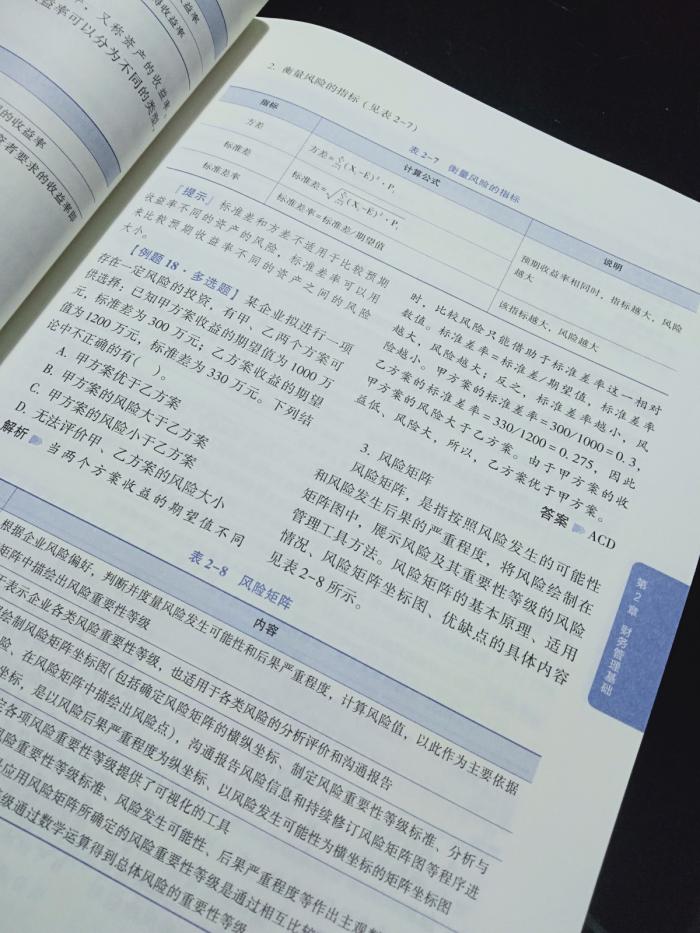 又称资产的收益率,
益率可以分为不同的类型,
的收益率
资者要求的收益率即
2. 衡量风险的指标(见表2-7)
表2-7 衡量风险的指标
指标 计算公式 说明
方差 方差=∑(Xᵢ-E)²·Pᵢ
标准差 标准差=√∑(Xᵢ-E)²·Pᵢ
预期收益率相同时,指标越大,风险
越大
标准差率 标准差率=标准差/期望值 该指标越大,风险越大
「提示」标准差和方差不适用于比较预期
收益率不同的资产的风险,标准差率可以用
来比较预期收益率不同的资产之间的风险
大小。
【例题18·多选题】某企业拟进行一项
存在一定风险的投资,有甲、乙两个方案可
供选择,已知甲方案收益的期望值为1000万
元,标准差为300万元;乙方案收益的期望
值为1200万元,标准差为330万元。下列结
论中不正确的有( )。
A. 甲方案优于乙方案
B. 甲方案的风险大于乙方案
C. 甲方案的风险小于乙方案
D. 无法评价甲、乙方案的风险大小
解析 当两个方案收益的期望值不同
时,比较风险只能借助于标准差率这一相对
数值。标准差率=标准差/期望值,标准差率
越大,风险越大;反之,标准差率越小,风
险越小。甲方案的标准差率=300/1000=0.3,
乙方案的标准差率=330/1200=0.275,因此
甲方案的风险大于乙方案。由于甲方案的收
益低、风险大,所以,乙方案优于甲方案。
答案 ACD
3. 风险矩阵
风险矩阵,是指按照风险发生的可能性
和风险发生后果的严重程度,将风险绘制在
矩阵图中,展示风险及其重要性等级的风险
管理工具方法。风险矩阵的基本原理、适用
情况、风险矩阵坐标图、优缺点的具体内容
见表2-8所示。
表2-8 风险矩阵
内容
根据企业风险偏好,判断并度量风险发生可能性和后果严重程度,计算风险值,以此作为主要依据
矩阵中描绘出风险重要性等级
于表示企业各类风险重要性等级,也适用于各类风险的分析评价和沟通报告
绘制风险矩阵坐标图(包括确定风险矩阵的横纵坐标、制定风险重要性等级标准、分析与
险、在风险矩阵中描绘出风险点),沟通报告风险信息和持续修订风险矩阵图等程序进
坐标,是以风险后果严重程度为纵坐标、以风险发生可能性为横坐标的矩阵坐标图
定各项风险重要性等级提供了可视化的工具
风险重要性等级标准、风险发生可能性、后果严重程度等作出主观
应用风险矩阵所确定的风险重要性等级是通过相互比较
级通过数学运算得到总体风险的重要性等级
第2章 财务管理基础